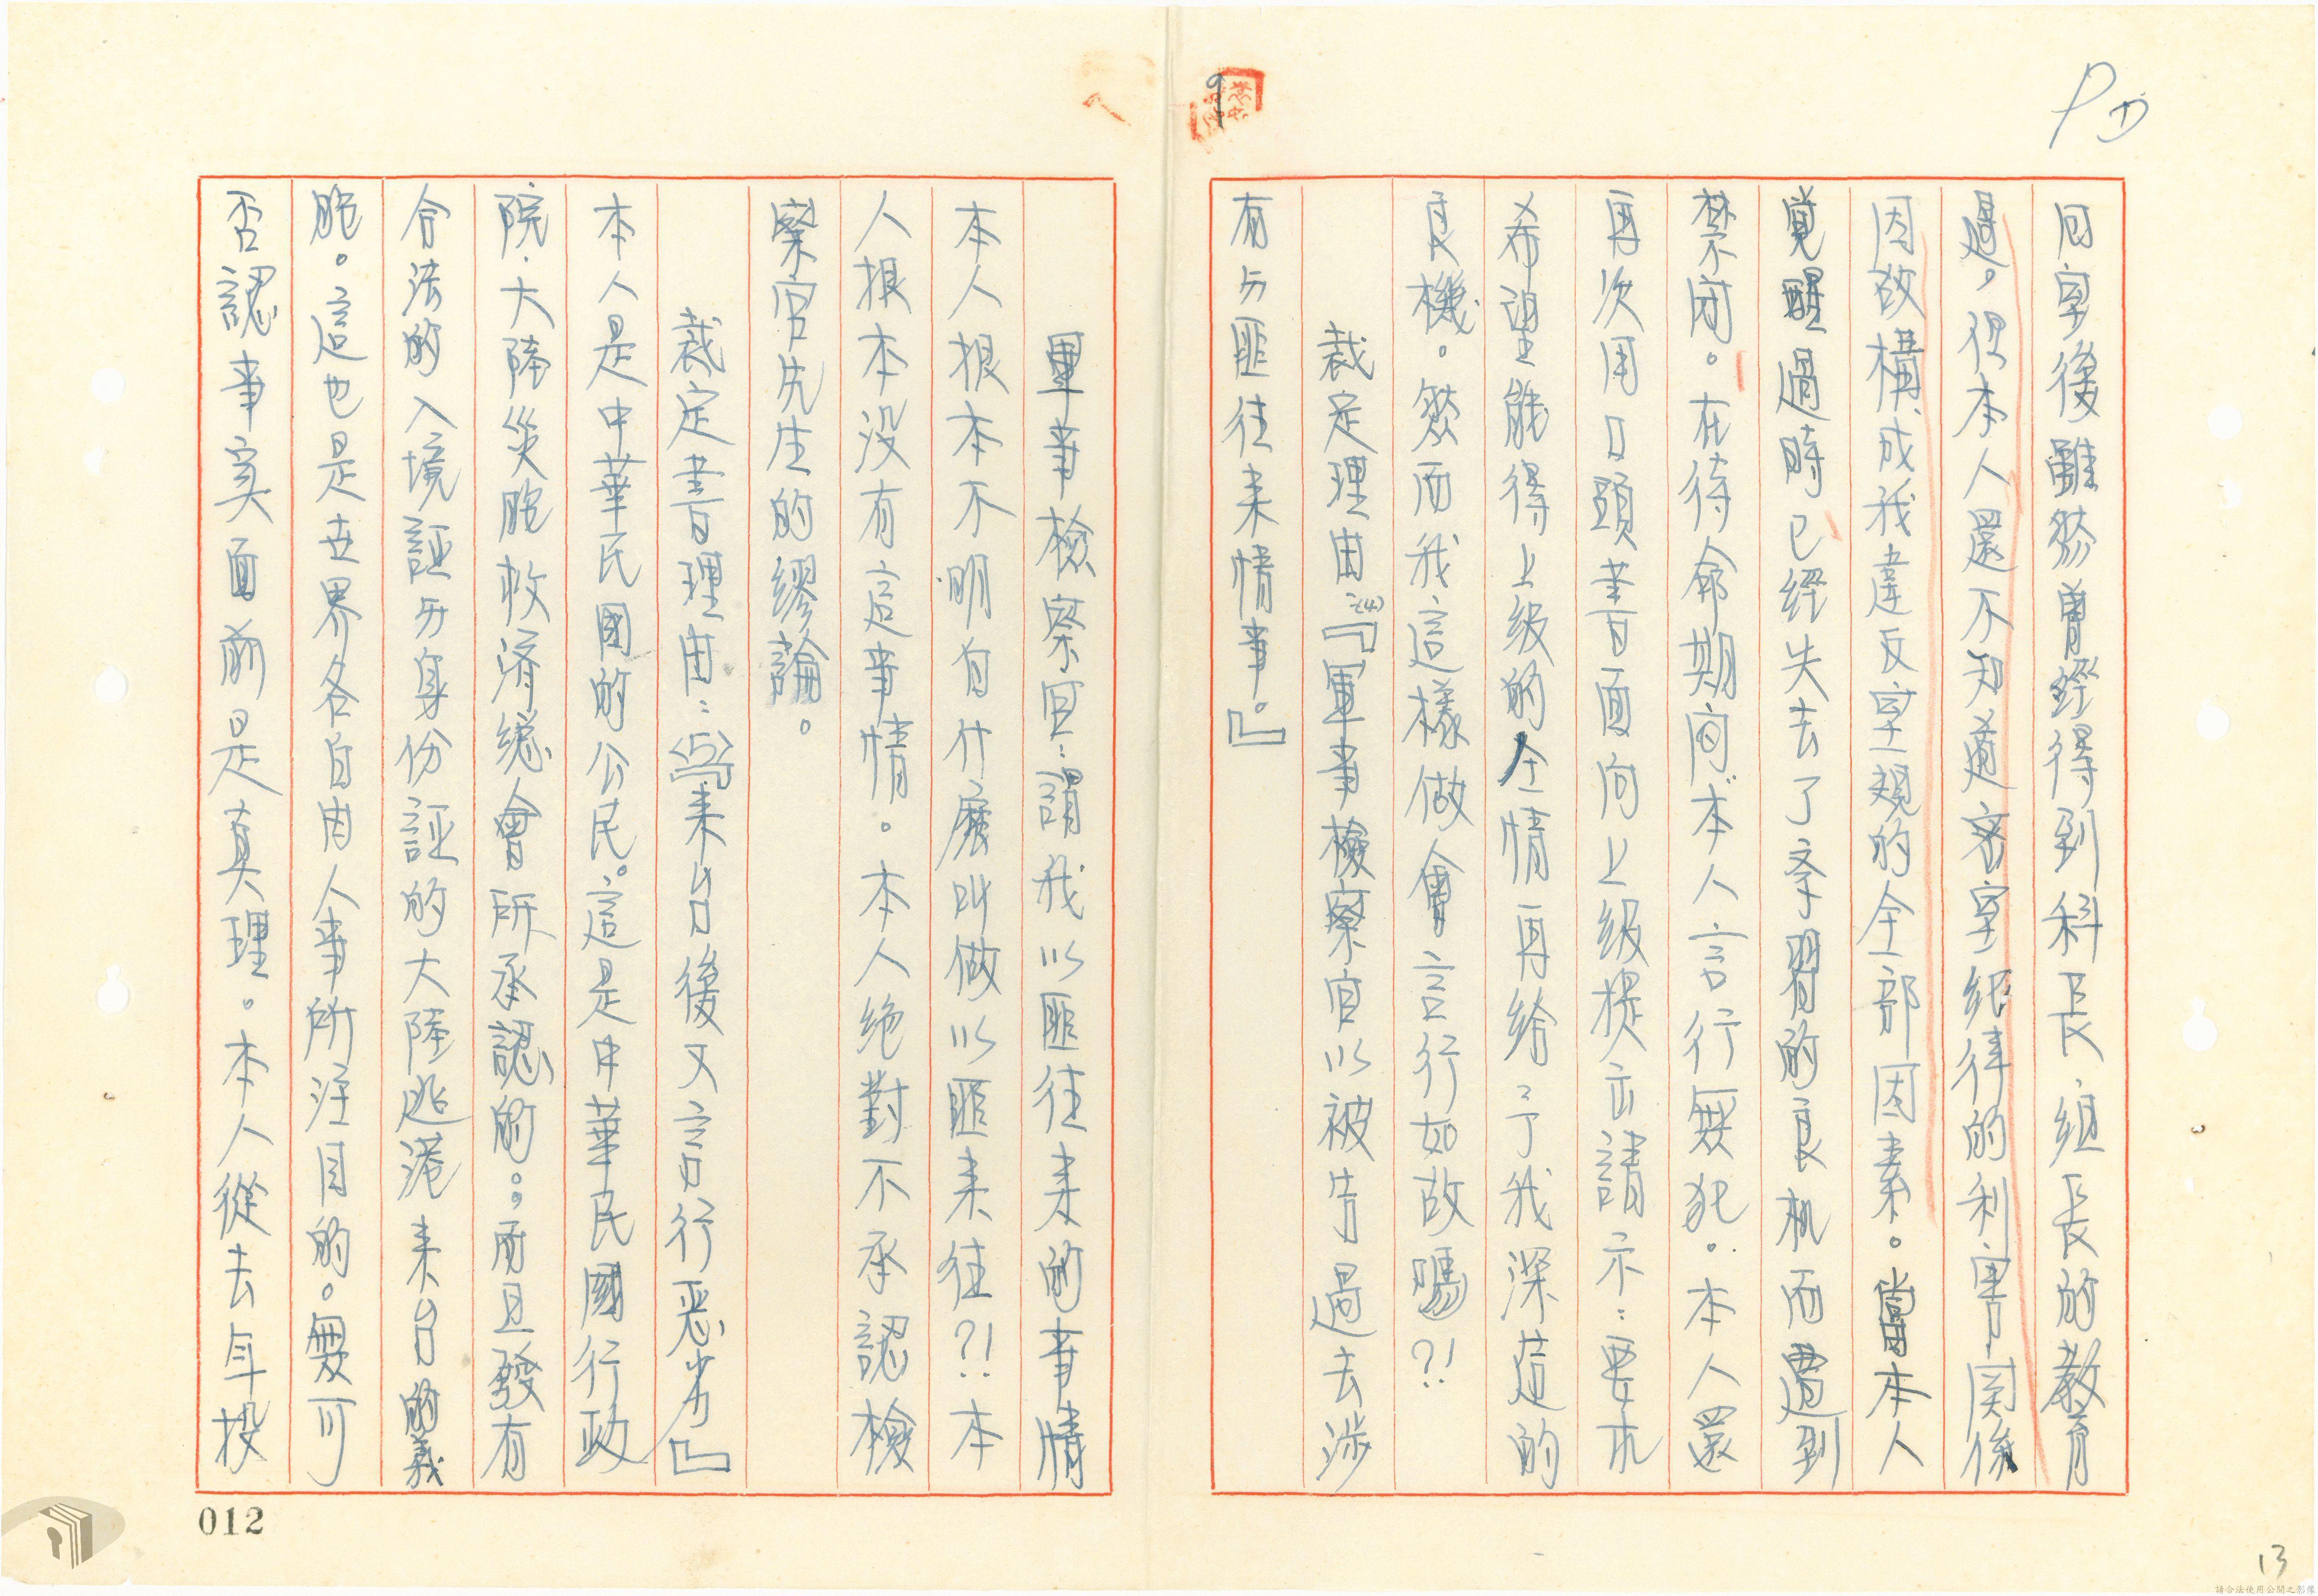 回室後雖然曾經得到科長、組長的教育
過。但本人還不知道密室紀律的利害関係
因故構成我違反室規的全部因素。當本人
覚醒過時已經失去了学習的良机而遭到
禁闭。在待命期间本人言行無犯。本人還
再次用口頭書面向上級提示請示：要求
希望能得上級的全情再給予我深造的
良機。然而我這樣做會言行如故嗎?!
裁定理由：(4)『軍事檢察官以被告過去涉
有与匪往来情事。』
軍事檢察官：謂我以匪往来的事情
本人根本不明白什麼叫做以匪来往?!本
人根本没有這事情。本人绝對不承認檢
察官先生的謬論。
裁定書理由：(5)『来台後又言行惡劣』
本人是中華民國的公民。這是中華民國行政
院、大陸災胞救濟總會所承認的：而且發有
合法的入境証与身份証的大陸逃港来台的義
胞。這也是世界各自由人事所注目的。無可
否認事实面前是真理。本人從去年投
012
13
請合法使用公開之影像